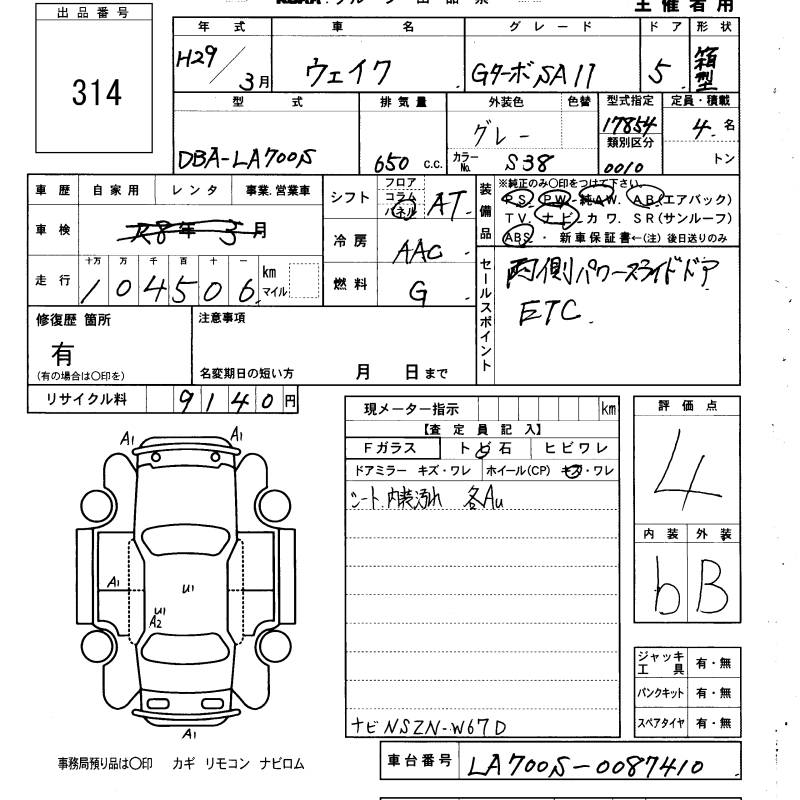 主催者用
出品番号
314
年式 車名 グレード ドア 形状
H29/3月 ウェイク Gターボ SAII 5 箱型
型式 排気量 外装色 色替 型式指定 定員・積載
DBA-LA700S 650 c.c. グレー 17854 4 名
類別区分
カラーNo. S38 0010 トン
車歴 自家用 レンタ 事業.営業車
車検 R8年 3月
走行 十万 万 千 百 十 一
104506 km マイル
シフト フロア コラム パネル AT
冷房 AAC
燃料 G
装備品
※純正のみ〇印をつけて下さい。
P.S. P.W. 純A.W. A.B.(エアバック)
T.V. ナビ カワ. S.R(サンルーフ)
ABS. 新車保証書←(注)後日送りのみ
セールスポイント
両側パワースライドドア
ETC.
修復歴 箇所
有
(有の場合は〇印を)
注意事項
名変期日の短い方 月 日まで
リサイクル料 9140円
現メーター指示 km
【査定員記入】
Fガラス トビ石 ヒビワレ
ドアミラー キズ・ワレ ホイール(CP) キズ・ワレ
シート、内装汚れ 各AU
ナビ NSZN-W67D
評価点
4
内装 外装
b B
A1 A1
A1
U1
U1
A2
A1
ジャッキ工具 有・無
パンクキット 有・無
スペアタイヤ 有・無
事務局預り品は〇印 カギ リモコン ナビロム
車台番号 LA700S-0087410